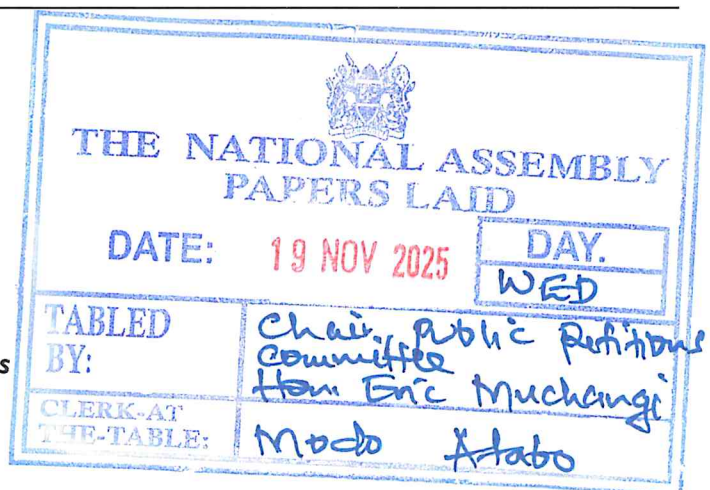 THE NATIONAL ASSEMBLY
PAPERS LAID
DATE: 19 NOV 2025
DAY.
WED
TABLED BY:
Chair, Public Petitions
Committee
Hon. Eric Muchangi
CLERK-AT
THE-TABLE:
s